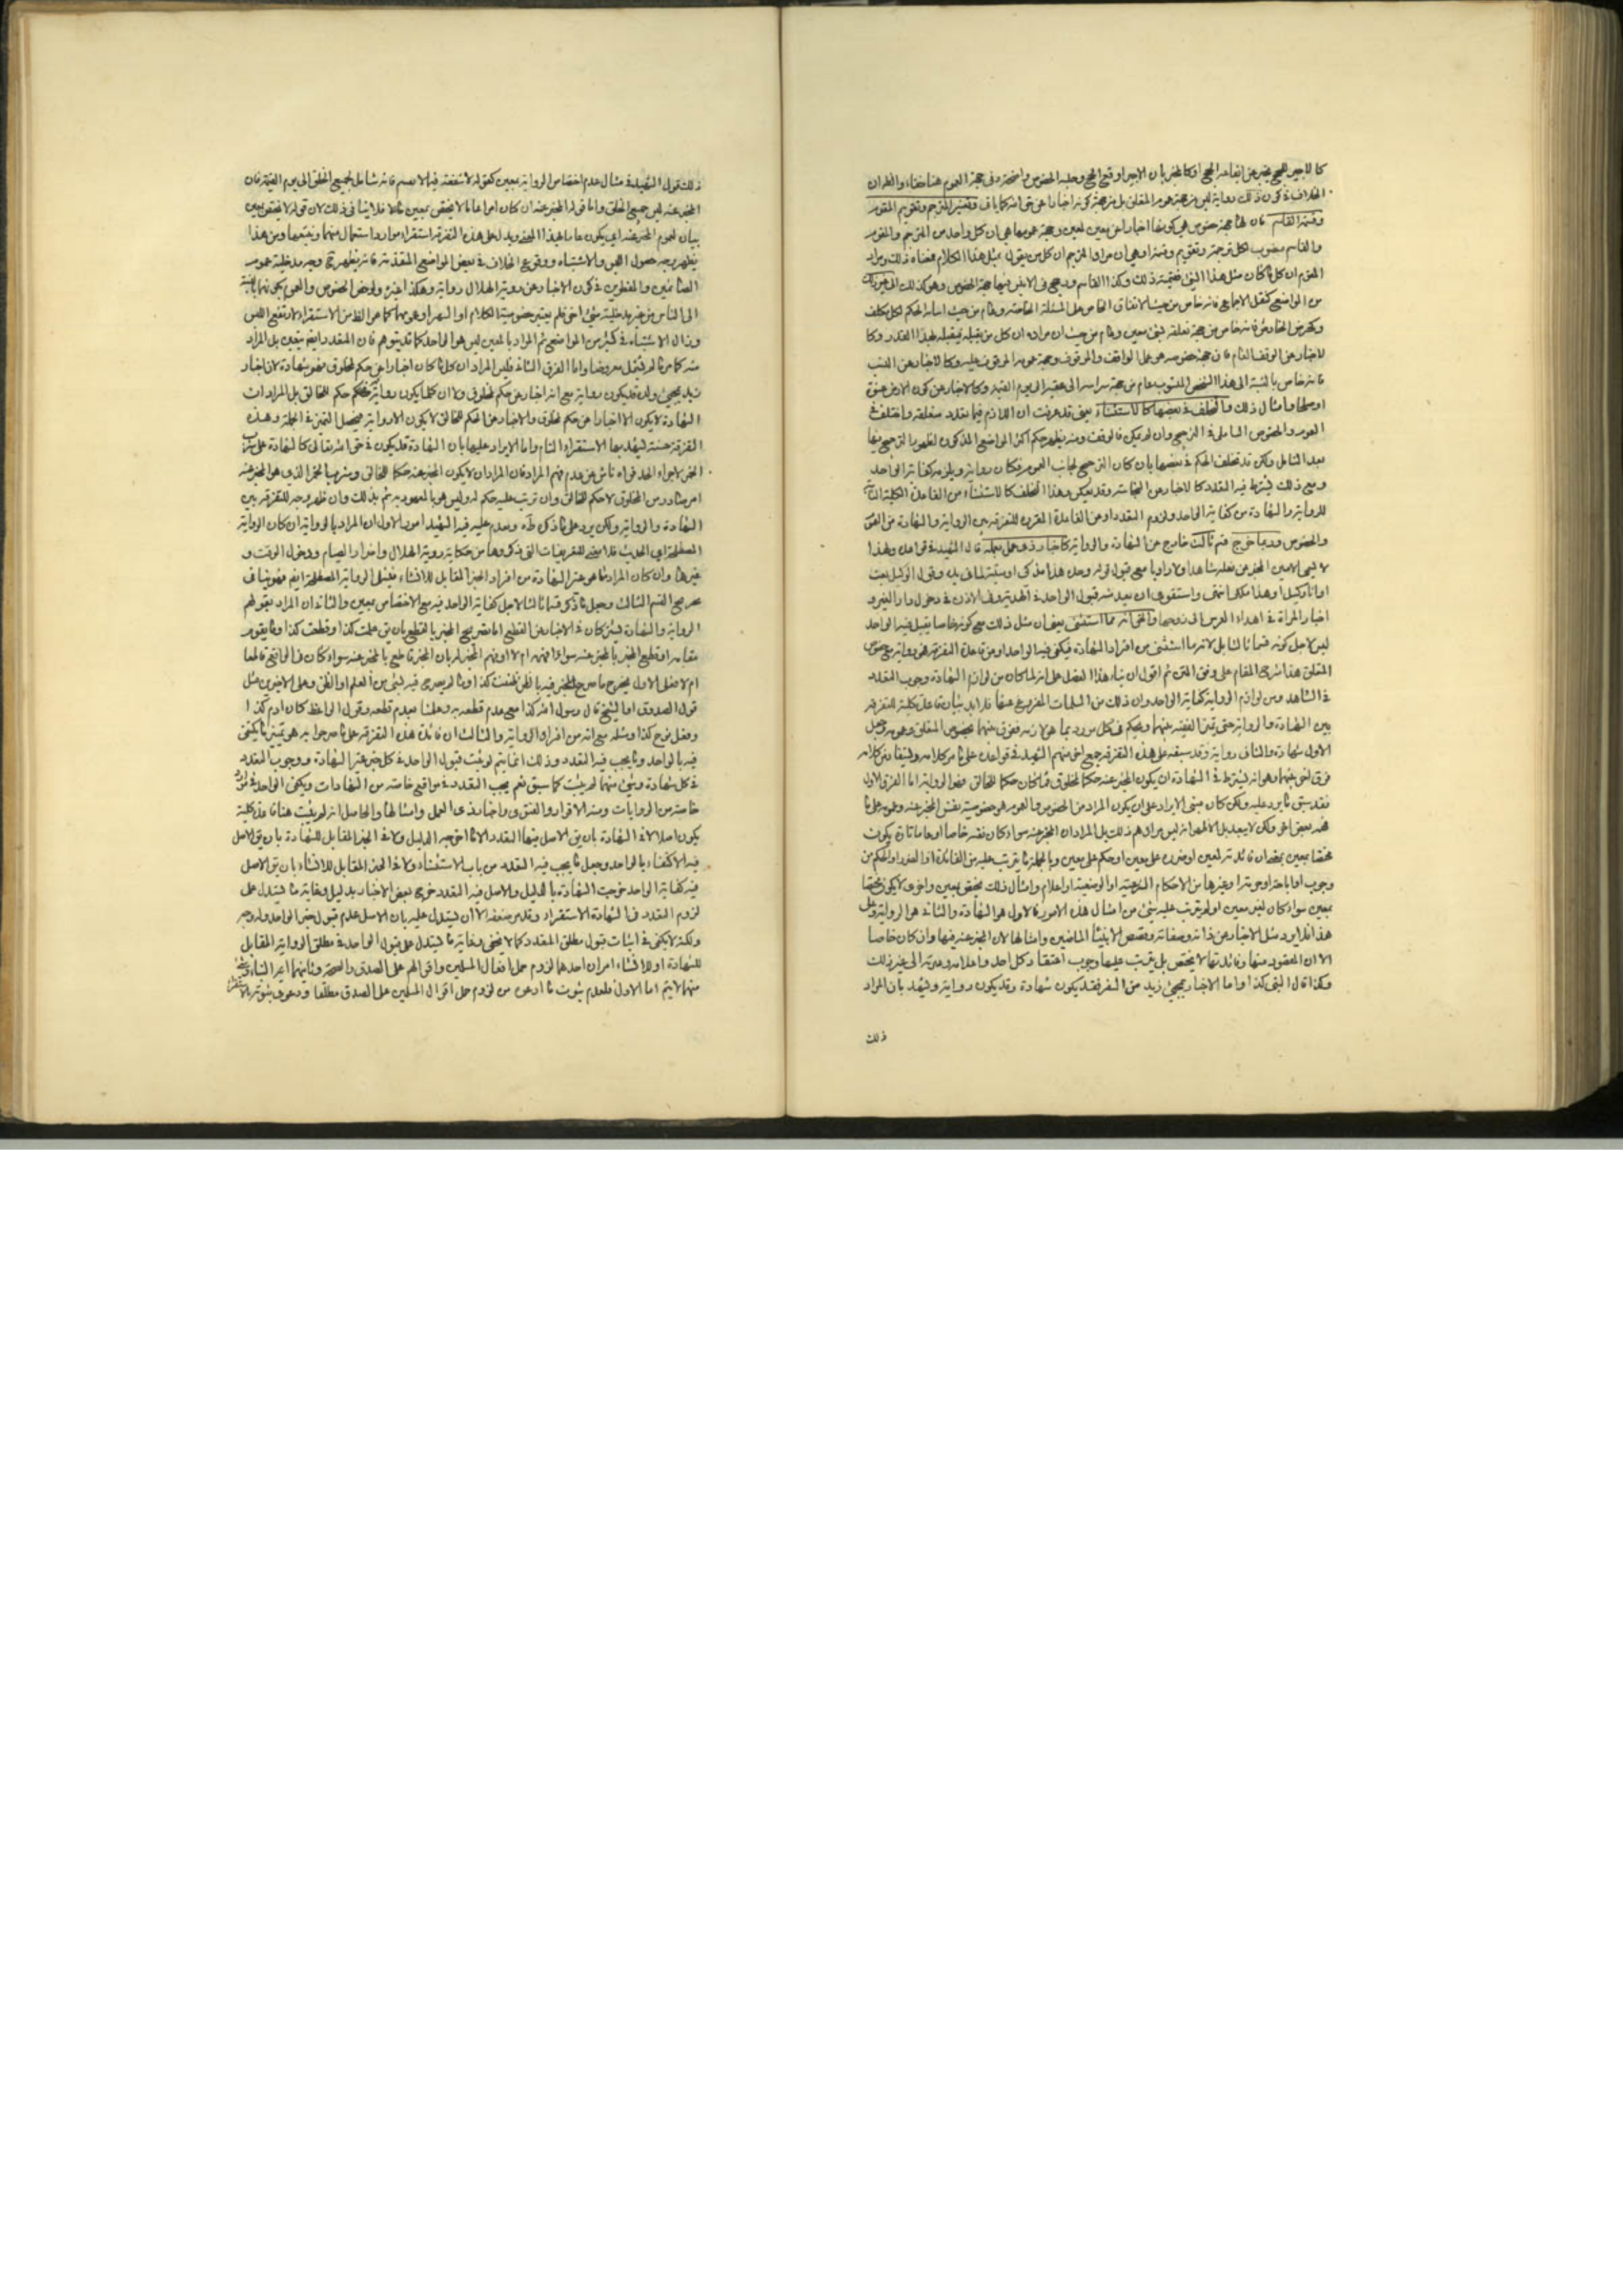 كالاجير للحج يخبر عن ايقاعه الحج او كالمخبر بان الاجير اوقع الحج وجهة الخصوص واضحة وفى جهة العموم هنا خفاء والظ ان
الخلاف فى كون ذلك رواية ليس من جهة عموم المتعلق بل من جهة كونه اخبارا عن حق الله كما ياتى وتفسير المترجم وتقويم المقوم
وقسمة القاسم فان لها جهة خصوص هى كونها اخبارا عن معين لمعين وجهة عمومها هى ان كل واحد من المترجم والمقوم
والقاسم منصوب لكل ترجمة وتقويم وقسمة او هى ان مراد المترجم ان كل من يقول مثل هذا الكلام فمعناه ذلك ومراد
المقوم ان كل ما كان مثل هذا الشئ فقيمته ذلك وكذا القاسم ويرجح فى الاخير فيها جهة الخصوص وهو كذلك الى غير ذلك
من المواضع كنقل الاجماع فانه خاص من حيث الاتفاق الخاص على المسئلة الخاصة وعام من حيث اصابة الحكم لكل مكلف
لاخبار عن الوقف العام فان جهة خصوصه هو عمل الواقف والموقوف وجهة عمومه الموقوف عليه وكالاخبار عن النسب
فانه خاص بالنسبة الى هذا الشخص المنسوب عام من جهة سرايته الى عقبه الى يوم القيمة وكالاخبار عن كون الارض عنوة
او صلحا وامثال ذلك والتخلف فى بعضها كالاستثناء يعنى قد عرفت ان اللازم فيما تعدد متعلقه واختلف فى
العموم والخصوص التامل فى الترجيح وان لم يكن فالوقف ومنه يظهر حكم اكثر المواضع المذكورة لظهور الترجيح فيها
بعد التامل ولكن قد تخلف الحكم فى بعضها بان كان الترجيح لجانب العموم فكان رواية ويلزمه كفاية الواحد
ومع ذلك يشترط فيه التعدد كالاخبار عن النجاسة وقد يعكس وهذا التخلف كالاستثناء من القاعدة الكلية
للرواية والشهادة من كفاية الواحد ولزوم التعدد او من القاعدة المقررة للتفرقة بين الرواية والشهادة من العموم
والخصوص وربما خرج قسم ثالث خارج عن الشهادة والرواية كاخبار ذى عمل بعمله قال الشهيد فى قواعده ولهذا
لا يسمى الامين المخبر عن فعله شاهدا ولا راويا مع قبول قوله وحده هذا مذكى او ميتة لما فى يده وقول الوكيل بعت
او انا وكيل او هذا ملكى انتهى واستقوى ان يعد منه قبول الواحد فى الهدية وفى الاذن فى دخول دار الغير و
اخبار المراة فى اهداء العروس الى زوجها والحق انه مما استثنى يعنى ان مثل ذلك مع كونه خاصا يقبل فيه الواحد
ليس لاجل كونه قسما ثالثا بل لانه مما استثنى من افراد الشهادة فيكفى فيه الواحد او من قاعدة التفرقة فهى رواية مع خصوص
المتعلق هذا شرح المقام على وفق المتن ثم اقول ان بناء هذا الفصل على انه لما كان من لوازم الشهادة وجوب التعدد
فى الشاهد ومن لوازم الرواية كفاية الواحد وان ذلك من المسلمات المفروغ عنها فلا بد بيان قاعدة كلية للتفرقة
بين الشهادة والرواية حتى تميز الفقيه بينهما ويحكم فى كل مورد بما هو لازمه ففرق بينهما بخصوص المتعلق وعمومه وجعل
الاول شهادة والثانى رواية وقد سبقه على هذه التفرقة جمع اخر منهم الشهيد فى قواعده على ما مر كلامه ويستفاد من كلامه
فرق اخر بينهما وهو انه يشترط فى الشهادة ان يكون المخبر عنه حكما لمخلوق فما كان حكما للخالق فهو الرواية اما الفرق الاول
فقد سبق ما يرد عليه ولكن كان مبنى الايراد على ان يكون المراد من الخصوص والعموم هو خصوصية نفس المخبر عنه وعمومه على ما
فهمه بعض اخر ولكن لا يبعد بل الاظهر انه ليس مرادهم ذلك بل المراد ان المخبر عنه سواء كان نفسه خاصا او عاما تارة يكون
مختصا بمعين بمعنى ان فائدته لمعين او ضرره على معين او حكم على معين وبالجملة ما يترتب عليه من الفائدة او الضرر او الحكم من
وجوب او اباحة او حرمة او غيرها من الاحكام الشرعية او الوضعية او اعلام وامثال ذلك مختص بمعين واخرى لا يكون مختصا
بمعين سواء كان لغير معين او لم يترتب عليه شئ من امثال هذه الامور فالاول هو الشهادة والثانى هو الرواية وعلى
هذا فلا يرد مثل الاخبار عن ذاته وصفاته وقصص الانبياء الماضين وامثالها لان المخبر عنه فيها وان كان خاصا
الا ان المقصود منها وفائدتها لا يختص بل يترتب عليها وجوب اعتقاد كل احد واعلامه وعبرته الى غير ذلك
وكذا قال النبى كذا واما الاخبار بمجئ زيد من السفر فقد يكون شهادة وقد يكون رواية ويشهد بان المراد
ذلك
ذلك قول الشهيد فى مثال عدم اختصاص الرواية بمعين كقوله لا شفعة فيما لا يقسم فانه شامل لجميع الخلق الى يوم القيمة فان
المخبر عنه ليس جميع الخلق واما قوله المخبر عنه ان كان امرا عاما لا يختص بمعين فلا ينافى ذلك لان قوله لا يختص بمعين
بيان لعموم المخبر عنه اى يكون عاما بهذا المعنى ويدل على هذه التفرقة استقراء موارد استعمال منهما وتتبعها ومن هذا
يظهر وجه حصول اللبس والاشتباه ووقوع الخلاف فى بعض المواضع المتقدمة فانه يظهر وجه مدخلية عموم
الصائمين والمفطرين فى كون الاخبار عن روية الهلال رواية وهكذا غيره ولو خص الخصوص والعموم
الى الناس من غير مدخلية شئ اخر فلم يعتبر خصوصية الكلام او الشهر او عمومهما كما هو الظ من الاستقراء لارتفع اللبس
وزال الاشتباه فى كثير من المواضع ثم المراد بالمعين ليس هو الواحد كما قد يتوهم فان المتعدد ايضا يتعين بل المراد
منه كما مر ما لم يشمل معروضا واما الفرق الثانى فليس المراد ان كل ما كان اخبارا عن حكم لمخلوق فهو شهادة لان اخبار
زيد بمجئ ولده قد يكون رواية مع انه اخبار عن حكم لمخلوق ولا ان كلما يكون رواية فحكم حكم للخالق بل المراد ان
الشهادة لا يكون الا اخبارا عن حكم لمخلوق والاخبار عن الحكم للخالق لا يكون الا رواية فيحصل التميز فى الجملة وهذه
التفرقة حسنة يشهد بها الاستقراء التام واما الايراد عليها بان الشهادة قد يكون فى حق الله تعالى كالشهادة على شرب
الخمر لاجراء الحد فهو ناش عن عدم فهم المراد فان المراد ان لا يكون المخبر عنه حكما للخالق وشربها الخمر الذى هو المخبر عنه
امر صادر من المخلوق لا حكم للخالق وان ترتب عليه حكم له وليس هو بالمشهود به ثم بذلك وان ظهر وجه للتفرقة بين
الشهادة والرواية ولكن يرد على ما ذكره طاه وتقدم عليه فيه الشهيد امور الاول ان المراد بالرواية ان كان الرواية
المصطلحة اى الحديث فلا معنى للتفريعات التى ذكروها من حكاية روية الهلال واضرار الصيام ودخول الوقت و
غيرها وان كان المراد ما هو غير الشهادة من افراد الخبر المقابل للانشاء فيشمل الرواية المصطلحة ايضا فهو ينافى
تصريح القسم الثالث وجعل ما ذكره قسما ثالثا لاجل كفاية الواحد فيه مع الاختصاص بمعين والثانى ان المراد بقولهم
الرواية والشهادة يشتركان فى الاخبار عن القطع اما تصريح المخبر بالقطع بان يق علمت كذا او قطعت كذا وما يقوم
مقامه او قطع المخبر بالمخبر عنه سواء افهمه ام لا او فهم المخبر له بان المخبر قاطع بالمخبر عنه سواء كان فى الواقع قاطعا
ام لا فعلى الاول يخرج ما صرح المخبر فيه بالظن كظننت كذا او ما لم يصرح فيه لشئ من العلم او الظن وعلى الاخيرين مثل
قول الصدوق او الشيخ قال رسول الله كذا مع عدم قطعه به وعلمنا بعدم قطعه وقول الواعظ كان ادم كذا
وفعل نوح كذا ومثله مع انه من افراد الرواية والثالث ان فائدة هذه التفرقة على ما صرحوا به هو تميز ما يكفى
فيه الواحد وما يجب فيه التعدد وذلك انما يتم لو ثبت قبول الواحد فى كل خبر غير الشهادة ووجوب التعدد
فى كل شهادة وشئ منهما لم يثبت كما سبق نعم يجب التعدد فى مواقع خاصة من الشهادات ويكفى الواحد فى موارد
خاصة من الروايات ومنه الاقرار والفتوى واخبار ذى العمل وامثالها والحاصل انه لم يثبت هنا قاعدة كلية
يكون اصلا لا فى الشهادة بان يق الاصل فيها التعدد الا ما اخرجه الدليل ولا فى الخبر المقابل للشهادة بان يق الاصل
فيه الاكتفاء بالواحد وجعل ما يجب فيه التعدد من باب الاستثناء ولا فى الخبر المقابل للانشاء بان يق الاصل
فيه كفاية الواحد خرجت الشهادة بالدليل والاصل فيه التعدد خرج بعض الاخبار بدليل وغاية ما يستدل على
لزوم التعدد فى الشهادة الاستقراء وقد مر ضعفه الا ان يستدل عليه بان الاصل عدم قبول خبر الواحد وله وجه
ولكنه لا يكفى فى اثبات قبول مطلق المتعدد كما لا يخفى وغاية ما يستدل على قبول الواحد فى مطلق الرواية المقابل
للشهادة او للانشاء امران احدهما لزوم حمل افعال المسلمين واقوالهم على الصدق والصحة وثانيهما اية النبأ وشئ
منهما لا يتم اما الاول فلعدم ثبوت ما ادعى من لزوم حمل اقوال المسلمين على الصدق مطلقا ودعوى ثبوته بالاستقراء